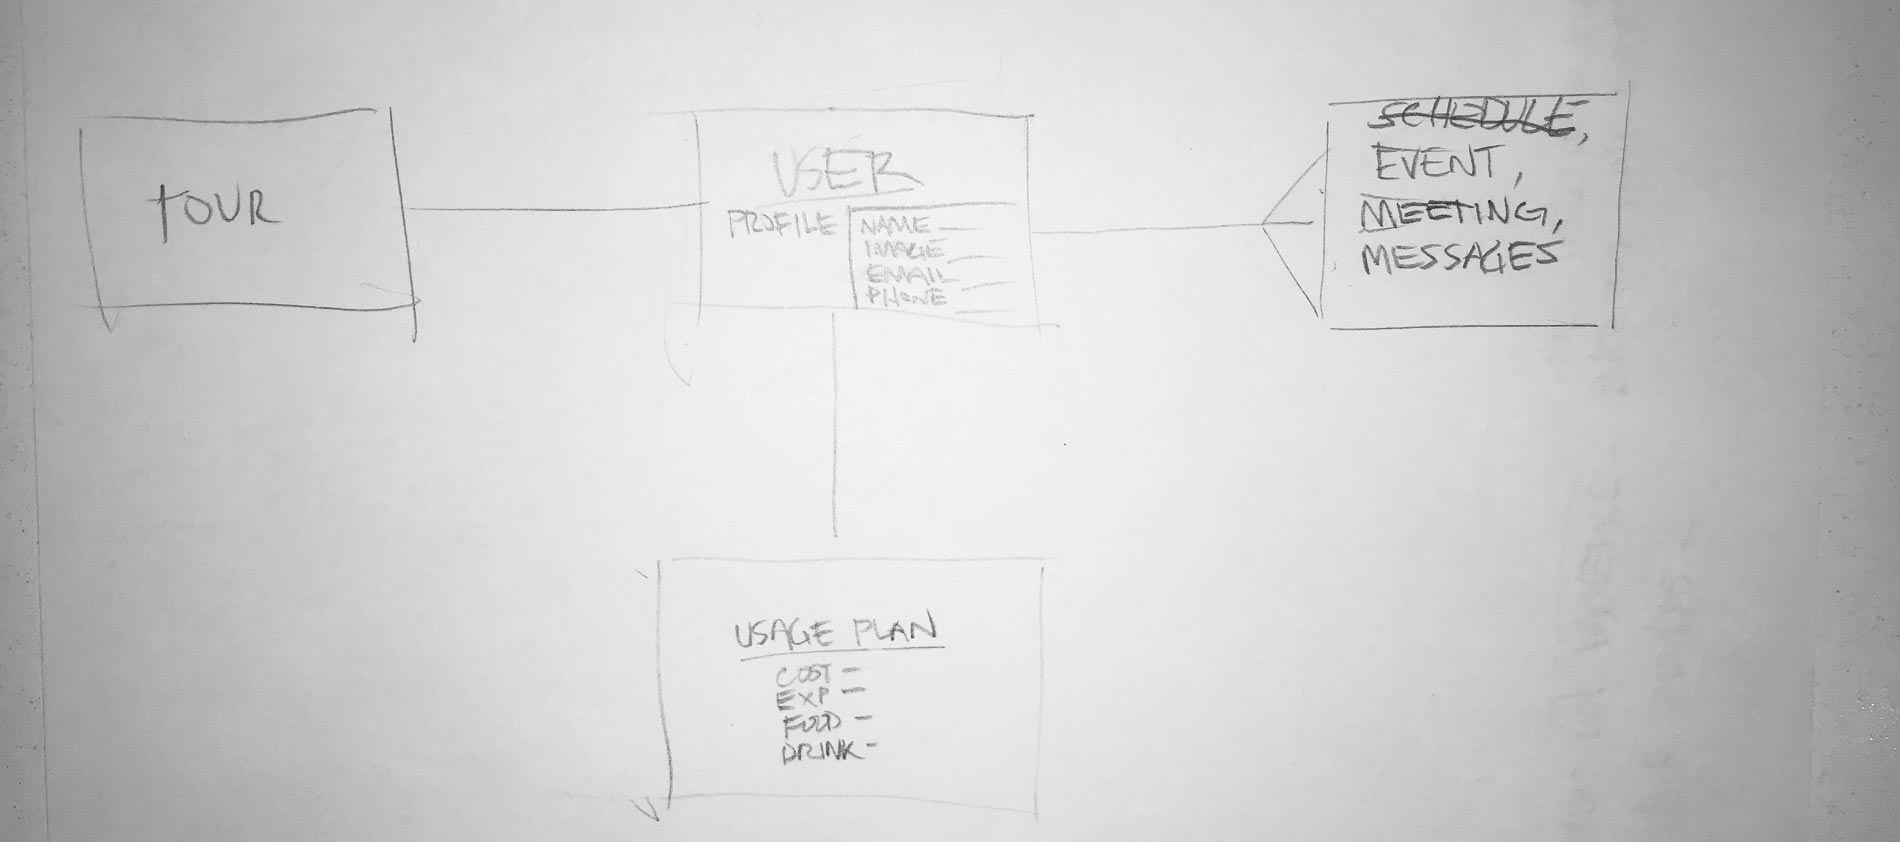 TOUR
USER
PROFILE
NAME
IMAGE
EMAIL
PHONE
SCHEDULE,
EVENT,
MEETING,
MESSAGES
USAGE PLAN
COST -
EXP -
FOOD -
DRINK -